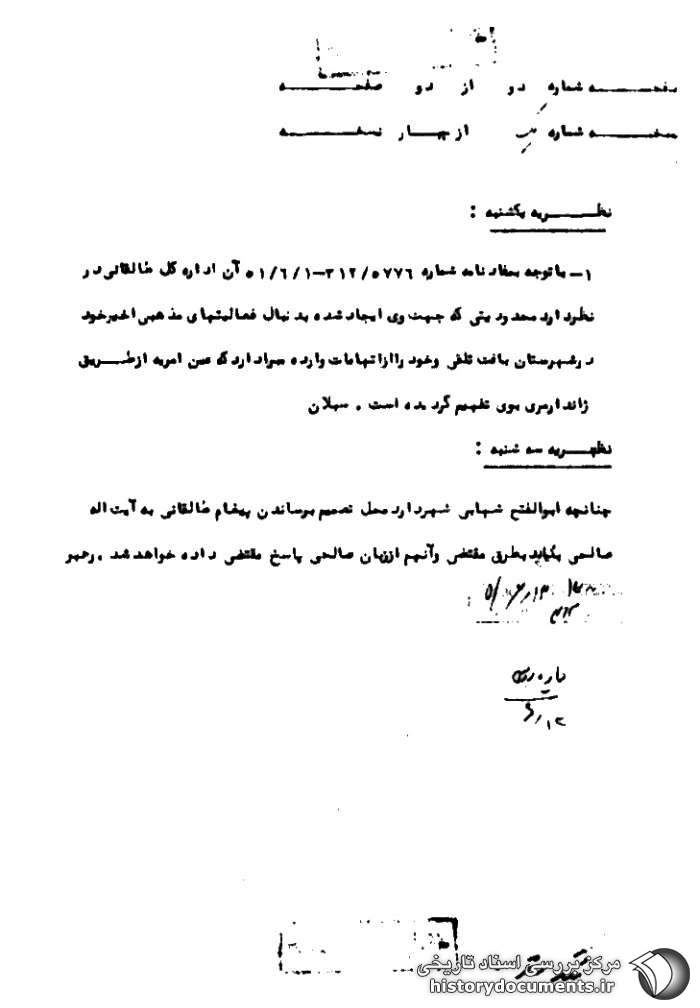 صفحـــــــه شماره دو از دو صفحـــــــه
نسخـــــــه شماره از چهـــار نسخـــــــه
نظـــــریه یکشنبه :
۱ــ با توجه بمفاد نامه شماره ۳۱۲/۵۷۷۶-۵۱/۶/۱ آن اداره کل طالقانی در
نظر دارد محدودیتی که جهت وی ایجاد شده بدنبال فعالیتهای مذهبی اخیر خود
در شهرستان بافت تلقی وخود را از اتهامات وارده مبرا دارد که عین امریه از طـــریق
ژاندارمری بوی تفهیم گردیده است . سبلان
نظـریه سه شنبه :
چنانچه ابوالفتح شهابی شهردار محل تصمیم برساندن پیغام طالقانی به آیت اله
صالحی بگیرد بطرق مقتضی وآنهم از زبان صالحی پاسخ مقتضی داده خواهد شد . رهبر
مرکز بررسی اسناد تاریخی
historydocuments.ir